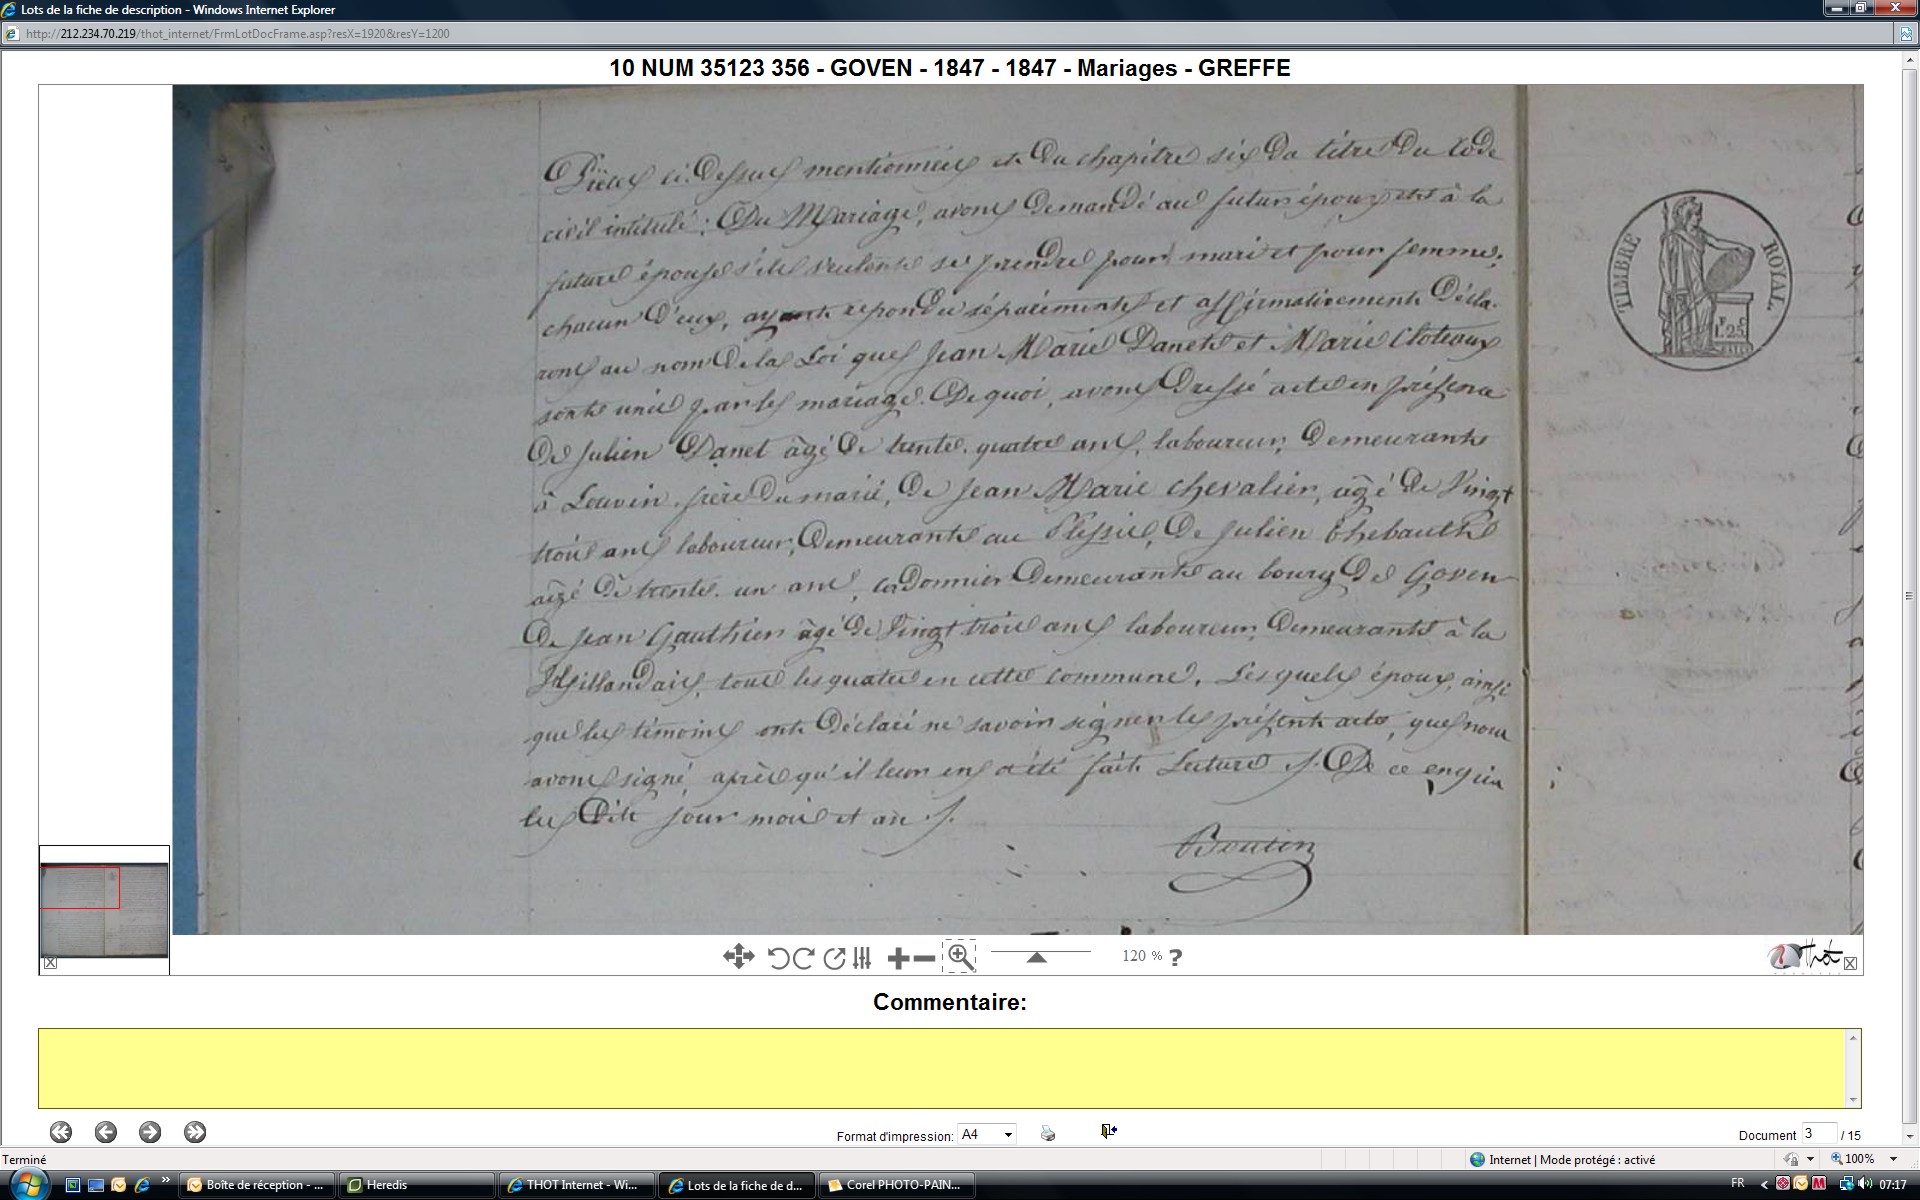 Lots de la fiche de description - Windows Internet Explorer
http://212.234.70.219/thot_internet/FrmLotDocFrame.asp?resX=1920&resY=1200
10 NUM 35123 356 - GOVEN - 1847 - 1847 - Mariages - GREFFE
Pièces ci-dessus mentionnées et du chapitre six du titre du code
civil intitulé: Du Mariage, avons demandé au futur époux et à la
future épouse s'ils veulent se prendre pour mari et pour femme;
chacun d'eux, ayant repondu séparément et affirmativement décla-
rons au nom de la Loi que Jean Marie Danet et Marie Cloteaux
sont unis par le mariage. De quoi, avons dressé acte en présence
de Julien Danet âgé de trente-quatre ans, laboureur, demeurant
à Louvin, frère du marié, de Jean Marie chevalier, âgé de Vingt
trois ans laboureur, demeurant au Plessis, de Julien Thebault
âgé de trente-un ans, cordonnier demeurant au bourg de Goven
de Jean Gauthier âgé de Vingt trois ans laboureur, demeurant à la
tous les quatre en cette commune. Les quels époux, ainsi
que les témoins ont déclaré ne savoir signer le présent acte, que nous
avons signé, après qu'il leur en a été fait Lecture /. De ce enquis
les dits jour mois et an /.
Boutin
TIMBRE ROYAL.
F. C
1.25
120 % ?
Thot
Commentaire:
Format d'impression: A4
Document 3 / 15
Terminé
Internet | Mode protégé : activé
100%
Boîte de réception - ...
Heredis
THOT Internet - Wi...
Lots de la fiche de d...
Corel PHOTO-PAIN...
FR
07:17